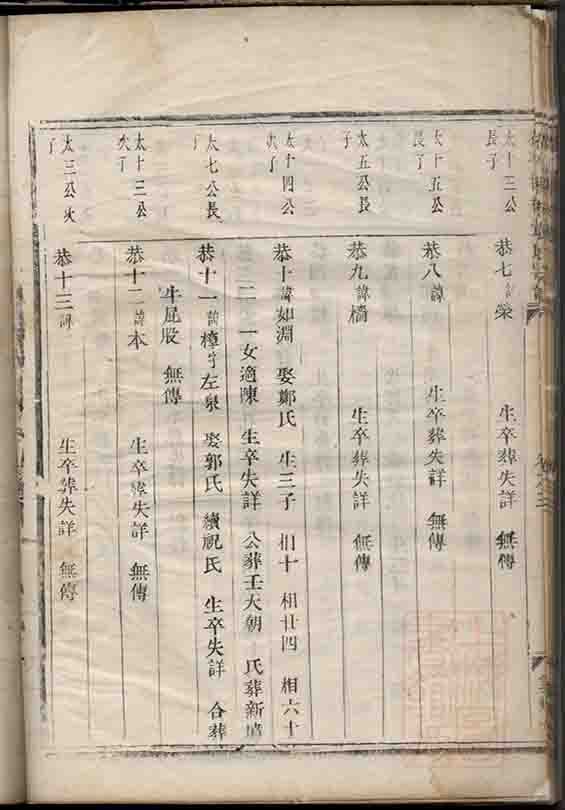 太十三公
長子
恭七諱榮
生卒葬失詳 無傳
太十五公
長子
恭八諱
生卒葬失詳 無傳
太五公長
子
恭九諱檣
生卒葬失詳 無傳
太十四公
次子
恭十諱如淵 娶鄭氏 生三子 相十 相廿四 相六十
二 一女適陳 生卒失詳 公葬王大朝 氏葬新墳
太七公長
子
恭十一諱樟字左泉 娶郭氏 續祝氏 生卒失詳 合葬
牛屁股 無傳
太十三公
次子
恭十二諱本
生卒葬失詳 無傳
太三公次
子
恭十三諱
生卒葬失詳 無傳